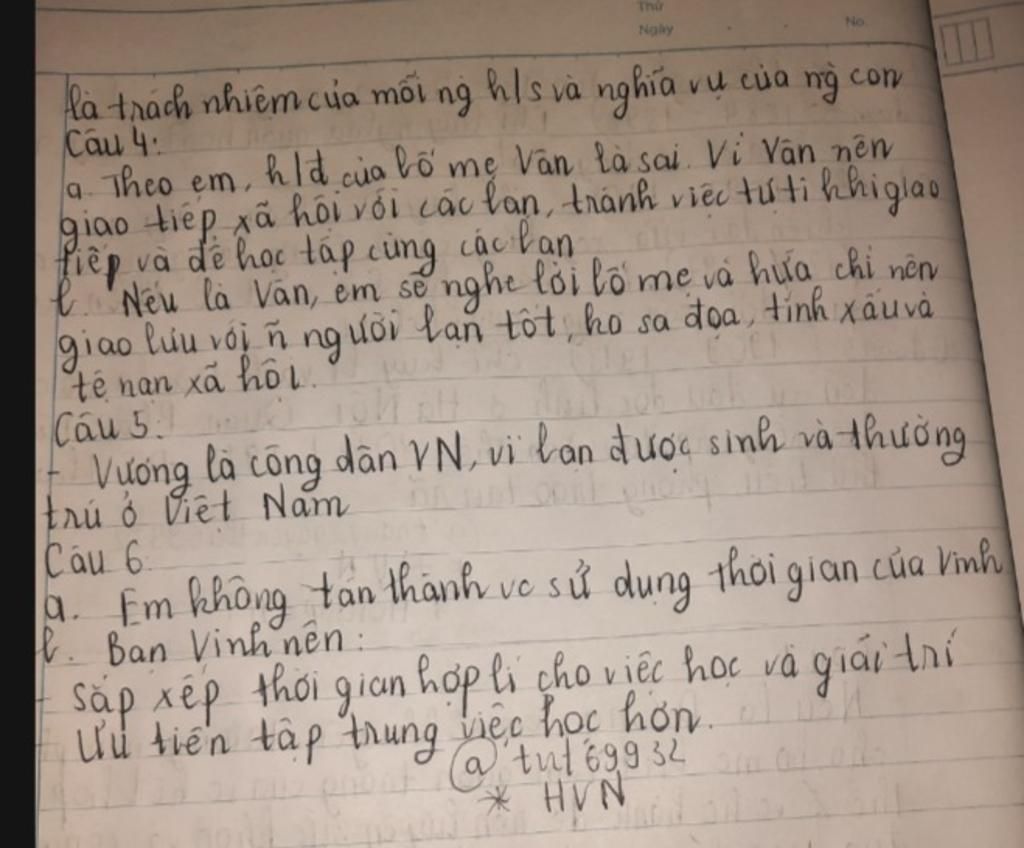 Thứ
Ngày
No.
là trách nhiệm của mỗi ng h/s và nghĩa vụ của ng con
Câu 4:
a. Theo em, h/đ của bố mẹ Vân là sai. Vì Vân nên
giao tiếp xã hội với các bạn, tránh việc tự ti khi giao
tiếp và để học tập cùng các bạn
b. Nếu là Vân, em sẽ nghe lời bố mẹ và hứa chỉ nên
giao lưu với ñ người bạn tốt, ko sa đọa, tính xấu và
tệ nạn xã hội.
Câu 5:
- Vương là công dân VN, vì bạn được sinh và thường
trú ở Việt Nam
Câu 6:
a. Em không tán thành vc sử dụng thời gian của Vinh
b. Bạn Vinh nên:
- sắp xếp thời gian hợp lí cho việc học và giải trí
- Ưu tiên tập trung việc học hơn.
@ tut69932
* HVN